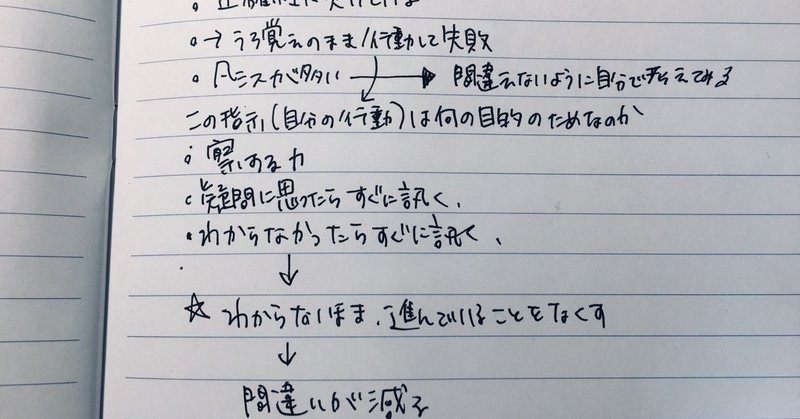 正確性に欠ける
→うろ覚えのまま行動して失敗
凡ミスが多い → 間違えないように自分で考えてみる
この指示(自分の行動)は何の目的のためなのか
察する力
疑問に思ったらすぐに訊く、
わからなかったらすぐに訊く、
↓
☆ わからないまま、進んでいることをなくす
↓
間違いが減る